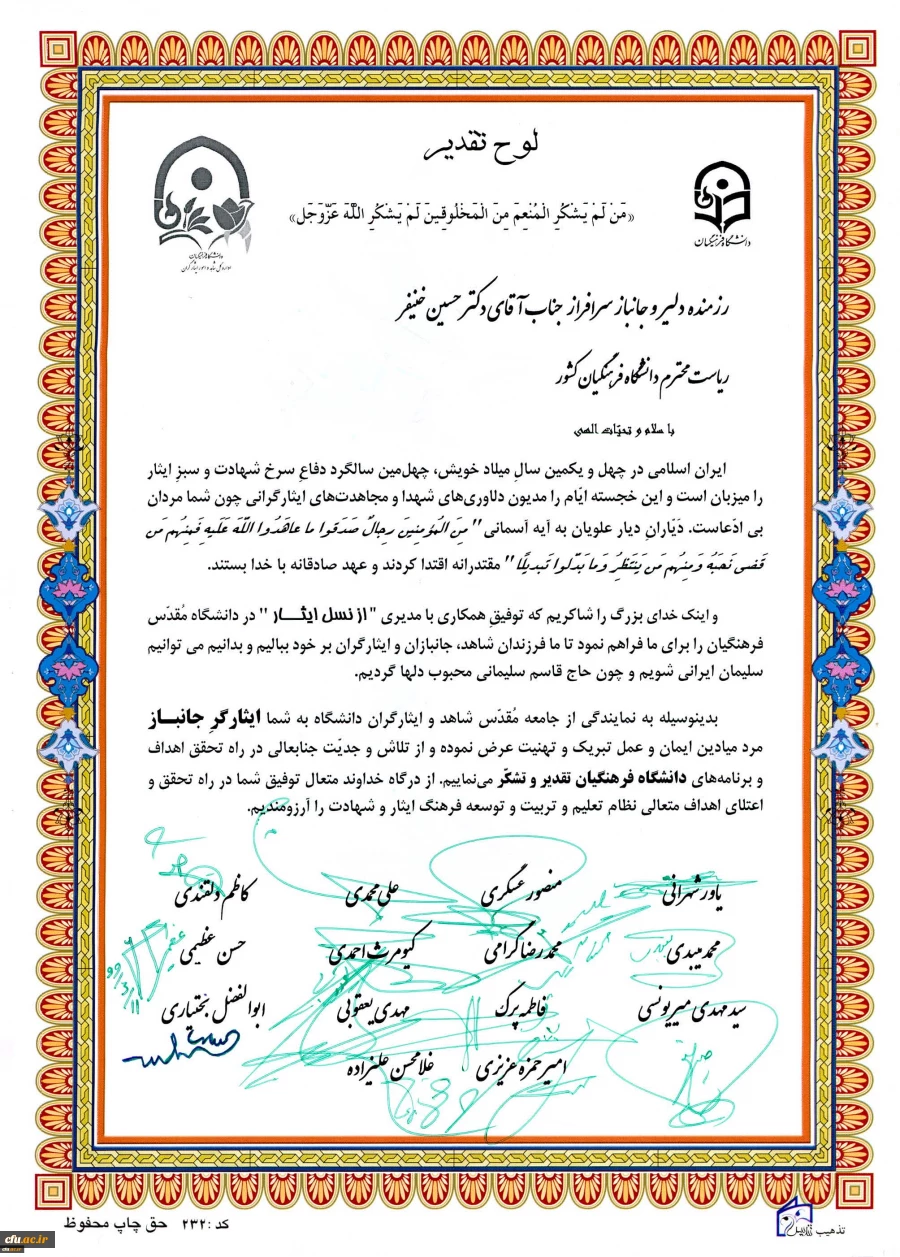 لوح تقدیر
«مَن لَمْ یَشکُرِ المُنعِمَ مِنَ المَخلُوقینَ لَمْ یَشکُرِ اللَّهَ عَزَّوَجَل»
دانشگاه فرهنگیان
دانشگاه فرهنگیان
اداره کل شاهد و امور ایثارگران
رزمنده دلیر و جانباز سرافراز جناب آقای دکتر حسین خنیفر
ریاست محترم دانشگاه فرهنگیان کشور
با سلام و تحیّات الهی
ایران اسلامی در چهل و یکمین سالِ میلاد خویش، چهل‌مین سالگرد دفاعِ سرخ شهادت و سبزِ ایثار
را میزبان است و این خجسته ایّام را مدیون دلاوری‌های شهدا و مجاهدت‌های ایثارگرانی چون شما مردان
بی ادّعاست. دَیّارانِ دیار علویان به آیه آسمانی "مِنَ المُؤمِنینَ رِجالٌ صَدَقوا ما عاهَدُوا اللَّهَ عَلَیهِ فَمِنهُم مَن
قَضی نَحبَهُ وَمِنهُم مَن یَنتَظِرُ وَما بَدَّلوا تَبدیلًا" مقتدرانه اقتدا کردند و عهد صادقانه با خدا بستند.
و اینک خدای بزرگ را شاکریم که توفیقِ همکاری با مدیری "از نسل ایثـــار" در دانشگاه مُقدّس
فرهنگیان را برای ما فراهم نمود تا ما فرزندان شاهد، جانبازان و ایثارگران بر خود ببالیم و بدانیم می توانیم
سلیمان ایرانی شویم و چون حاج قاسم سلیمانی محبوب دلها گردیم.
بدینوسیله به نمایندگی از جامعه مُقدّس شاهد و ایثارگران دانشگاه به شما ایثارگرِ جانبـــاز
مرد میادین ایمان و عمل تبریک و تهنیت عرض نموده و از تلاش و جدیّت جنابعالی در راه تحقق اهداف
و برنامه‌های دانشگاه فرهنگیان تقدیر و تشکّر می‌نماییم. از درگاه خداوند متعال توفیق شما در راه تحقق و
اعتلای اهداف متعالی نظام تعلیم و تربیت و توسعه فرهنگ ایثار و شهادت را آرزومندیم.
یاور شهرانی منصور عسگری علی محمدی کاظم دلقندی
محمد میبدی محمدرضا گرامی کیومرث احمدی حسن عظیمی
سید مهدی میریونسی فاطمه پرک مهدی یعقوبی ابوالفضل بختیاری
امیرحمزه عزیزی غلامحسن علیزاده
تذهیب
کد :۲۳۲ حق چاپ محفوظ
cfu.ac.ir
cfu.ac.ir